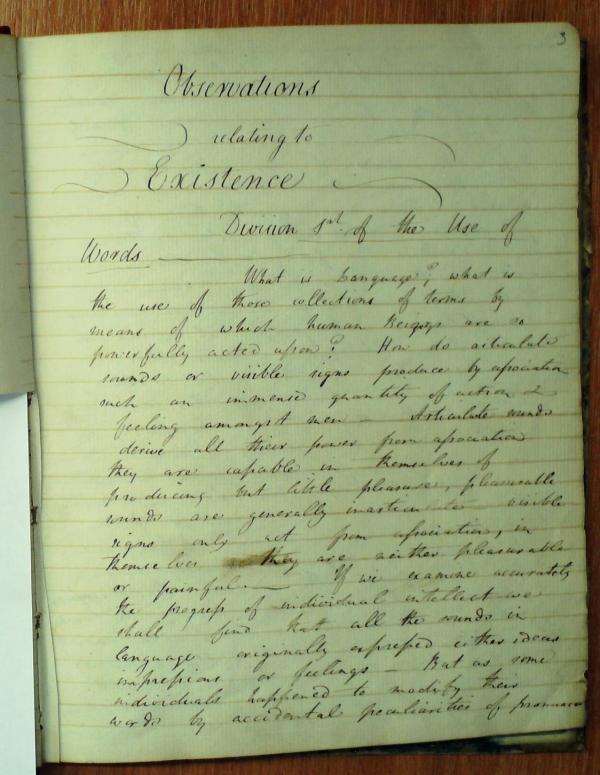 3
Observations
relating to
Existence
Division 1st. of the Use of
Words
What is Language?, what is
the use of those collections of terms by
means of which human Beings are so
powerfully acted upon? How do articulate
sounds or visible signs produce by association
such an immense quantity of action &
feeling amongst men – Articulate sounds
derive all their power from association
they are capable in themselves of
producing but little pleasure, pleasurable
sounds are generally inarticulate visible
signs only act from association, in
themselves they are neither pleasurable
or painful. – If we examine accurately
the progress of individual intellect we
shall find that all the sounds in
language originally expressed either ideas
impressions or feelings – But as some
individuals happened to modify their
words by accidental peculiarities of